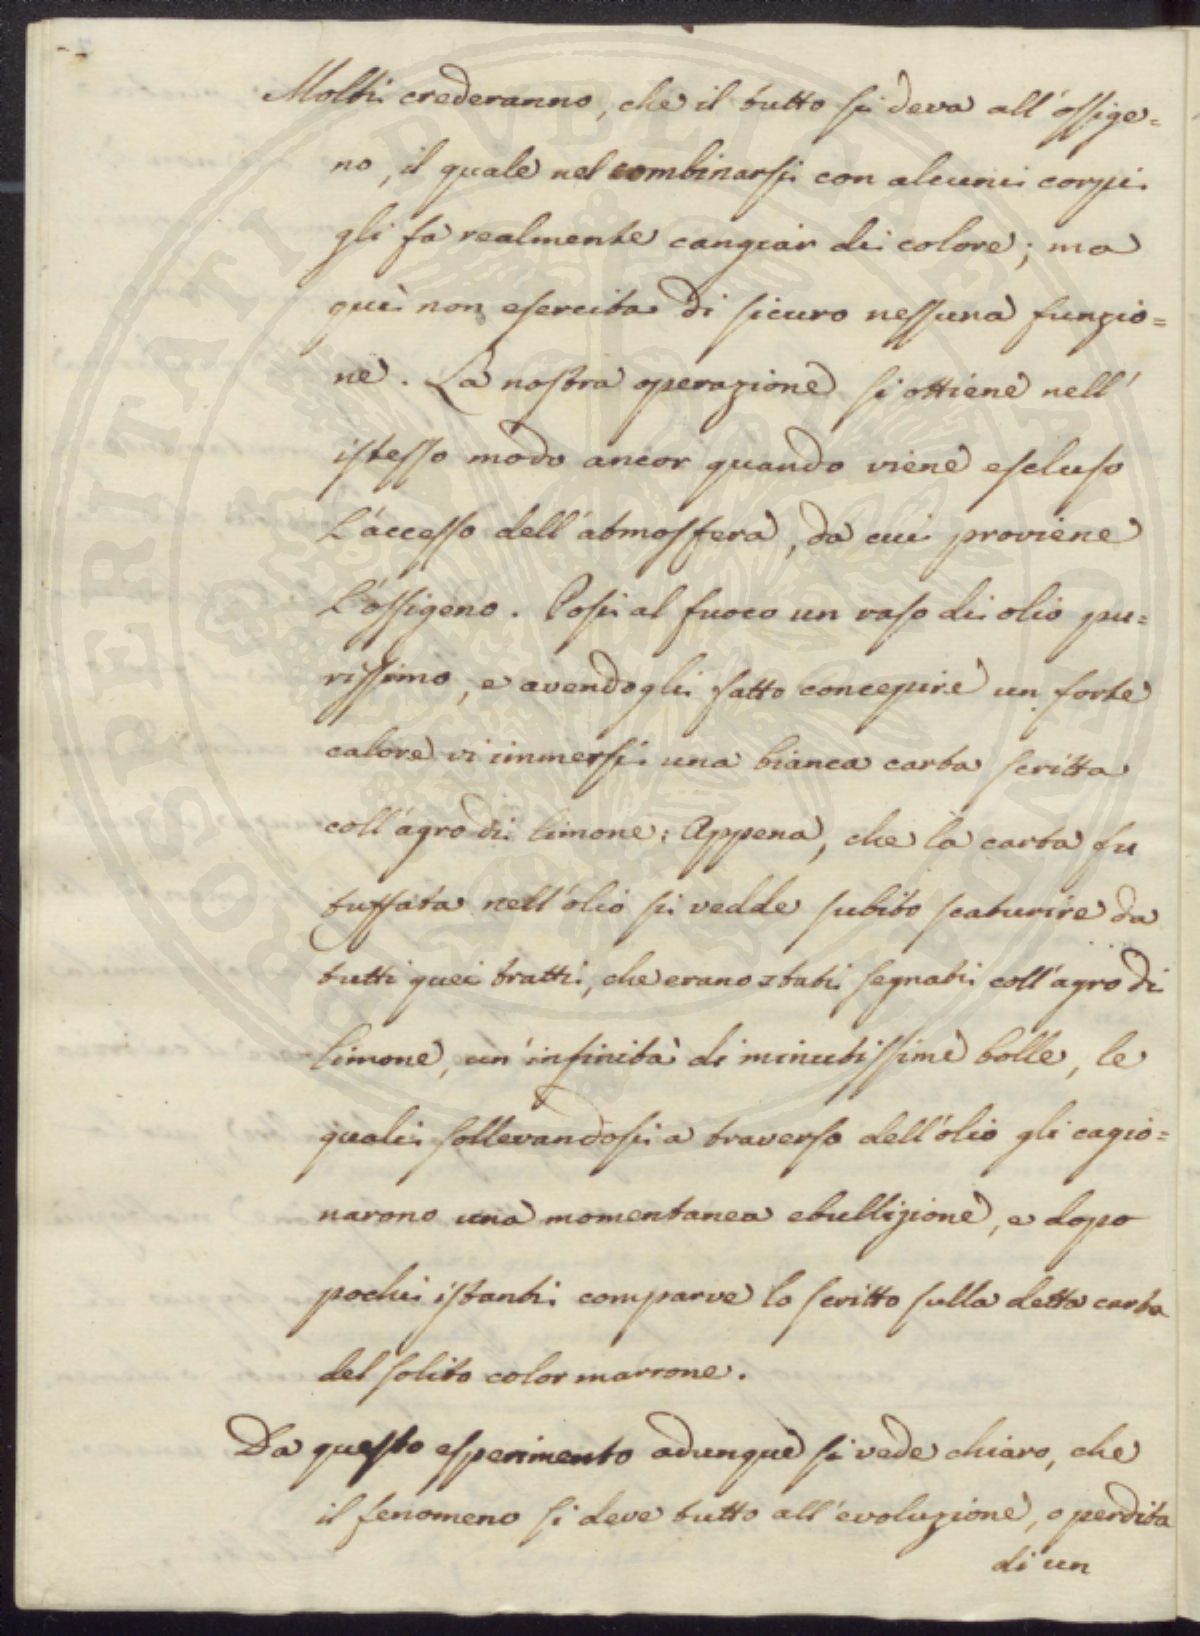 Molti crederanno, che il tutto si deva all'ossige=
no, il quale nel combinarsi con alcuni corpi
gli fà realmente cangiar di colore; ma
quì non esercita di sicuro nessuna funzio=
ne. La nostra operazione si ottiene nell'
istesso modo ancor quando viene escluso
l'accesso dell'atmosfera, da cui proviene
l'ossigeno. Posi al fuoco un vaso di olio pu=
rissimo, e avendogli fatto concepire un forte
calore vi immersi una bianca carta scritta
coll'agro di limone: Appena, che la carta fu
tuffata nell'olio si vedde subito scaturire da
tutti quei tratti, che erano stati segnati coll'agro di
limone, un'infinità di minutissime bolle, le
quali sollevandosi a traverso dell'olio gli cagio=
narono una momentanea ebullizione, e dopo
pochi istanti comparve lo scritto sulla detta carta
del solito color marrone.
Da questo esperimento adunque si vede chiaro, che
il fenomeno si deve tutto all'evoluzione, o perdita
di un
PROSPERITATI PVBLICAE AVGENDAE